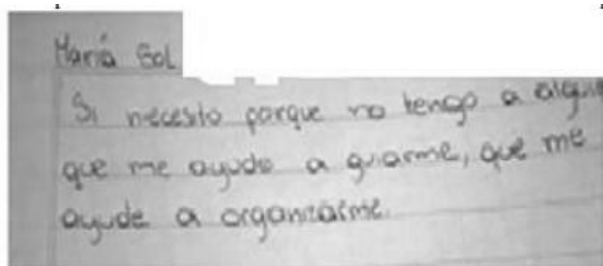 María Sol
Si necesito porque no tengo a algui
que me ayude a guiarme, que me
ayude a organizarme.